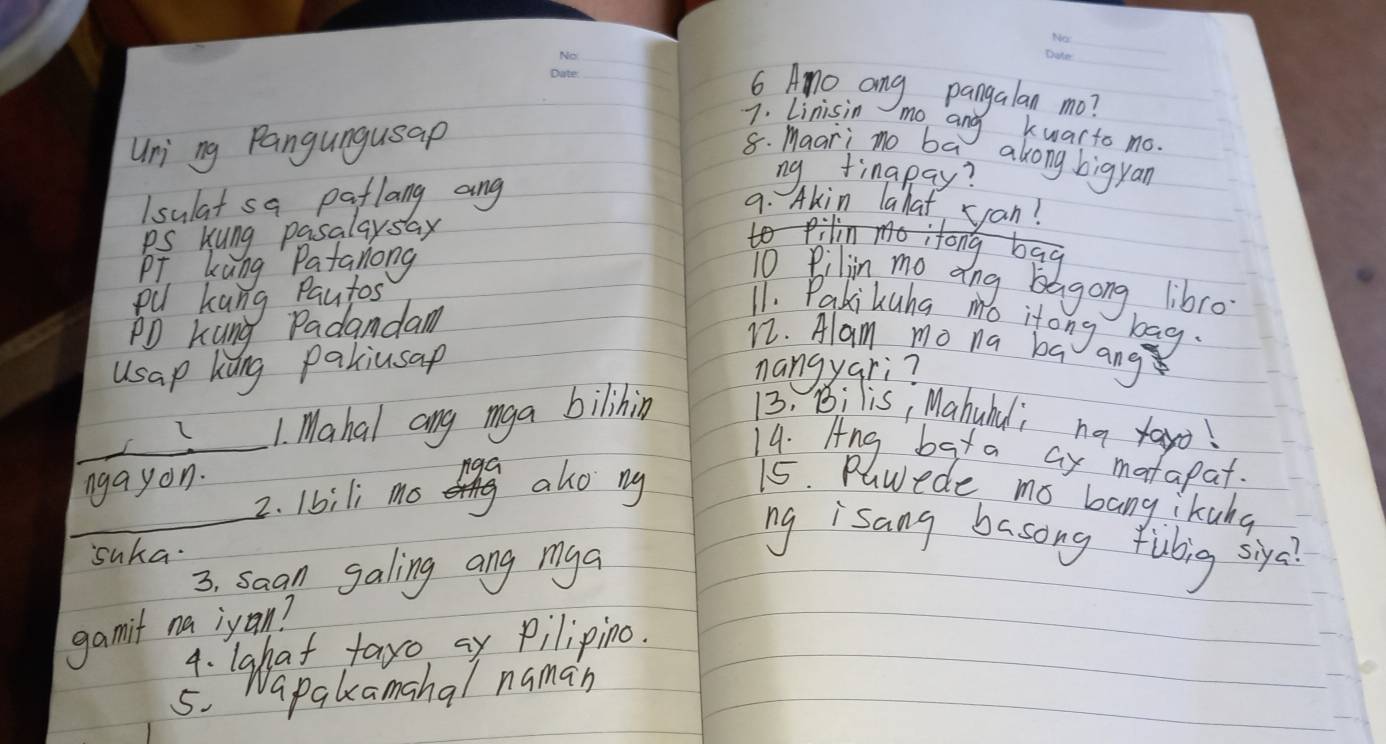 No:
Date:
Uri ng Pangungusap
Isulat sa patlang ang
PS kung pasalaysay
PT kung Patanong
PU kung Pautos
PD kung Padamdam
Usap kung pakiusap
1. Mahal ang mga bilihin
ngayon.
nga
2. Ibili mo ang ako ng
suka.
3. saan galing ang mga
gamit na iyan?
4. lahat tayo ay Pilipino.
5. Napakamahal naman
No:
Date:
6 Ano ang pangalan mo?
7. Linisin mo ang kuarto mo.
8. Maari mo ba akong bigyan
ng tinapay?
9. Akin lahat yan!
to Pilin mo itong bag
10 Piliin mo ang bagong libro.
11. Pakikuha mo itong bag.
12. Alam mo na ba ang
nangyari?
13. Bilis, Mahuhuli na tayo!
14. Ang bata ay matapat.
15. Puwede mo bang ikuha
ng isang basong tubig siya?